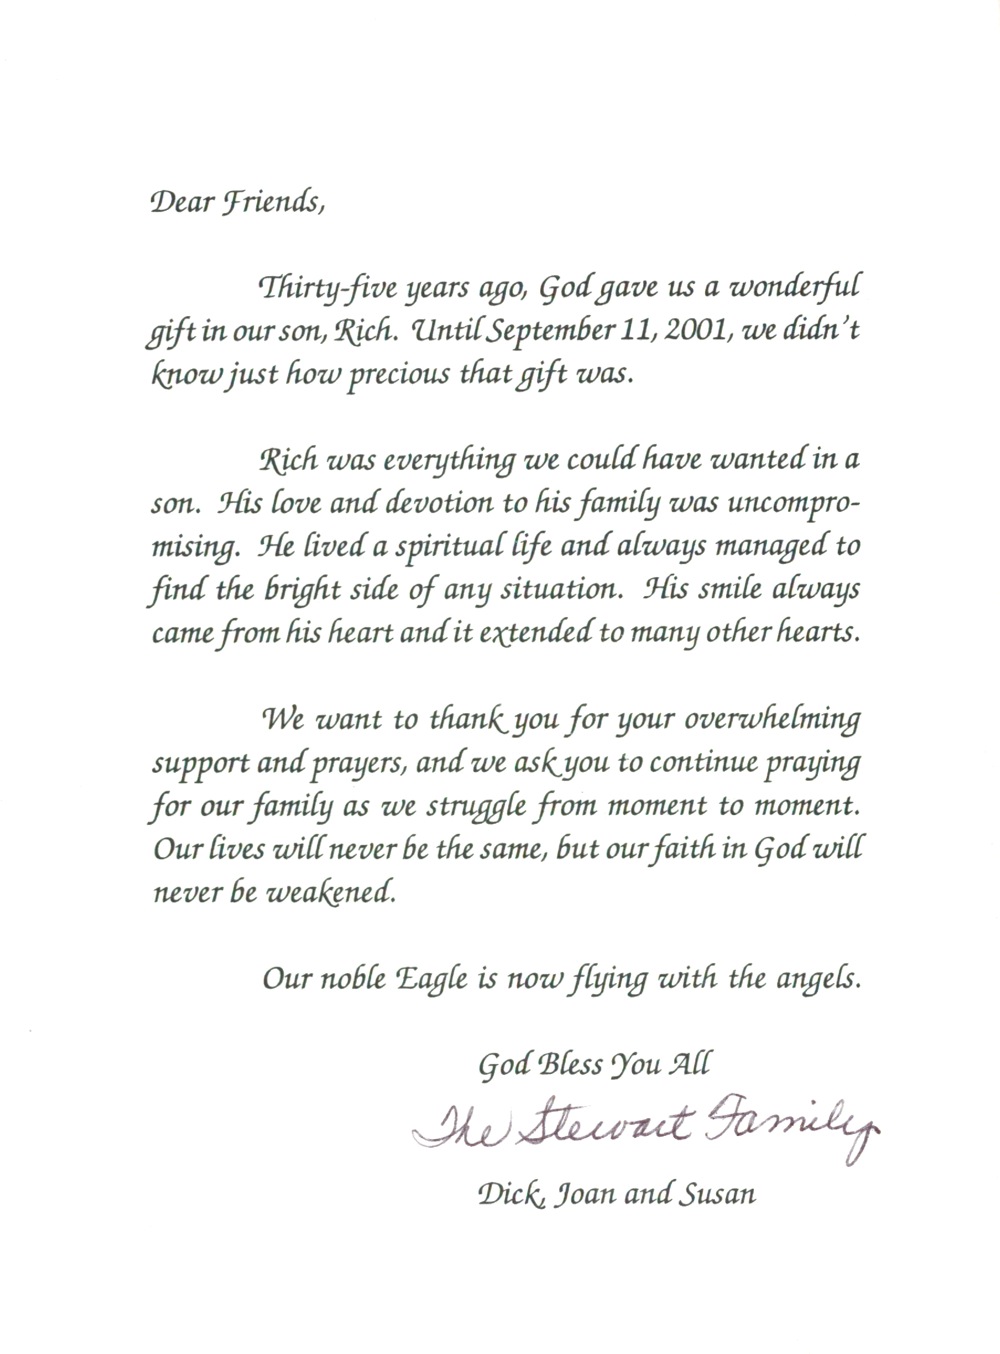 Dear Friends,
Thirty-five years ago, God gave us a wonderful
gift in our son, Rich. Until September 11, 2001, we didn't
know just how precious that gift was.
Rich was everything we could have wanted in a
son. His love and devotion to his family was uncompro-
mising. He lived a spiritual life and always managed to
find the bright side of any situation. His smile always
came from his heart and it extended to many other hearts.
We want to thank you for your overwhelming
support and prayers, and we ask you to continue praying
for our family as we struggle from moment to moment.
Our lives will never be the same, but our faith in God will
never be weakened.
Our noble Eagle is now flying with the angels.
God Bless You All
The Stewart Family
Dick, Joan and Susan